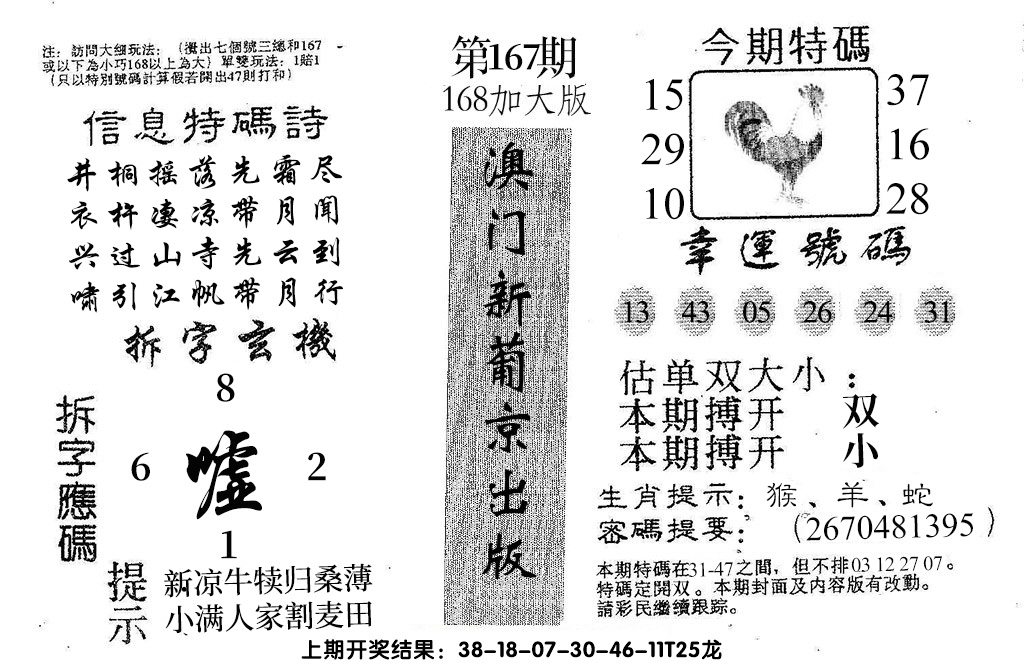 注：訪問大细玩法：（攪出七個號三總和167
或以下為小巧168以上為大）單雙玩法：1賠1
（只以特別號碼計算假若開出47則打和）
信息特碼詩
井桐摇落先霜尽
衣杵凄凉带月闻
兴过山寺先云到
啸引江帆带月行
拆字玄機
拆字應碼
8
6 嘘 2
1
提示
新凉牛犊归桑薄
小满人家割麦田
第167期
168加大版
澳门新葡京出版
今期特碼
15 37
29 16
10 28
幸運號碼
13 43 05 26 24 31
估单双大小：
本期搏开 双
本期搏开 小
生肖提示：猴、羊、蛇
密碼提要：（2670481395）
本期特碼在31-47之間，但不排03 12 27 07。
特碼定開双。本期封面及内容版有改動。
請彩民繼續跟踪。
上期开奖结果：38-18-07-30-46-11T25龙